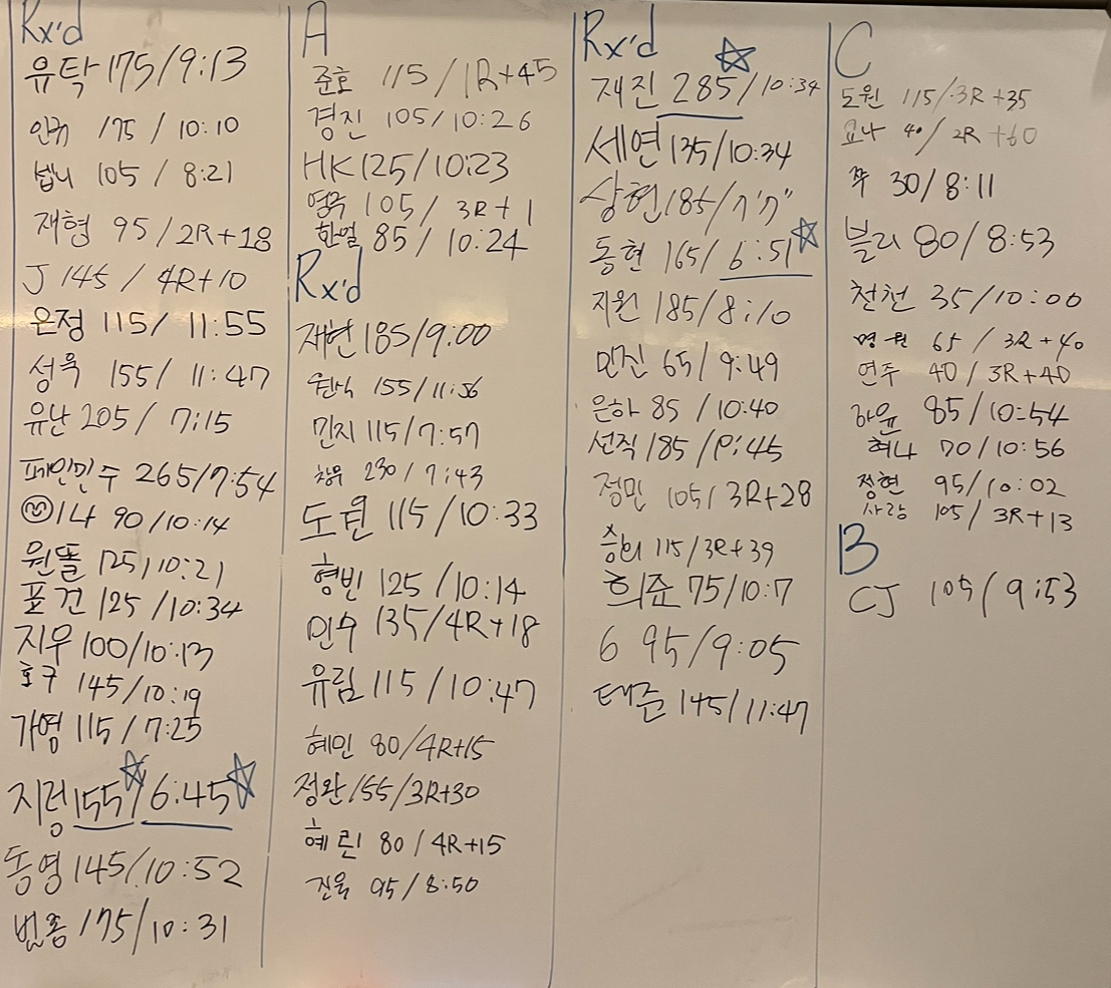 Rx'd
유탁 175/9:13
인규 175 / 10:10
썹니 105 / 8:21
재형 95/2R+18
J 145 / 4R+10
은정 115/ 11:55
성욱 155/ 11:47
유난 205/ 7:15
페인민수 265/7:54
이나 90/10:14
원똘 125/10:21
표건 125/10:34
지우 100/10:13
호구 145/10:19
가영 115/7:25
지렁 155/6:45
동영 145/10:52
범종 175/10:31
A
준호 115 / 1R+45
경진 105/10:26
HK 125/10:23
영주 105/ 3R+1
한얼 85/ 10:24
Rx'd
재현 185/9:00
원식 155/11:56
민지 115/7:57
창유 230/7:43
도원 115/10:33
형빈 125/10:14
민수 135/4R+18
유림 115/10:47
혜민 80/4R+15
정완 155/3R+30
혜린 80/4R+15
진욱 95/8:50
Rx'd
재진 285/10:34
세연 135/10:34
상현 185/7'7"
동현 165/6:51
지원 185/8:10
민진 65/9:49
은하 85/10:40
선직 185/9:45
정민 105/3R+28
승희 115/3R+39
희준 75/10:7
6 95/9:05
태준 145/11:47
C
도원 115/3R+35
요나 40/2R+60
쭈 30/8:11
블리 80/8:53
천천 35/10:00
명원 65/3R+40
연주 40/3R+40
하윤 85/10:54
혜나 70/10:56
정현 95/10:02
사랑 105/3R+13
B
CJ 105/9:53